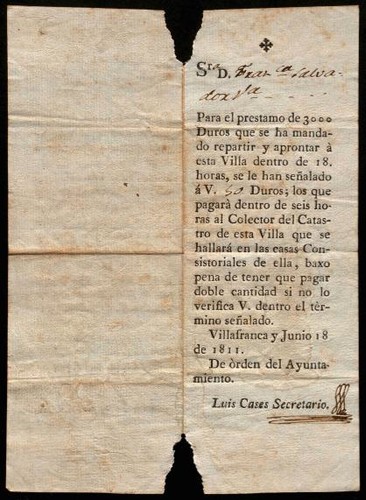 Sra D. Fran.ca Salva-
dor Va
Para el prestamo de 3000
Duros que se ha manda-
do repartir y aprontar à
esta Villa dentro de 18.
horas, se le han señalado
á V. 50 Duros; los que
pagarà dentro de seis ho-
ras al Colector del Catas-
tro de esta Villa que se
hallará en las casas Con-
sistoriales de ella, baxo
pena de tener que pagar
doble cantidad si no lo
verifica V. dentro el tèr-
mino señalado.
Villafranca y Junio 18
de 1811.
De òrden del Ayunta-
miento.
Luis Cases Secretario.